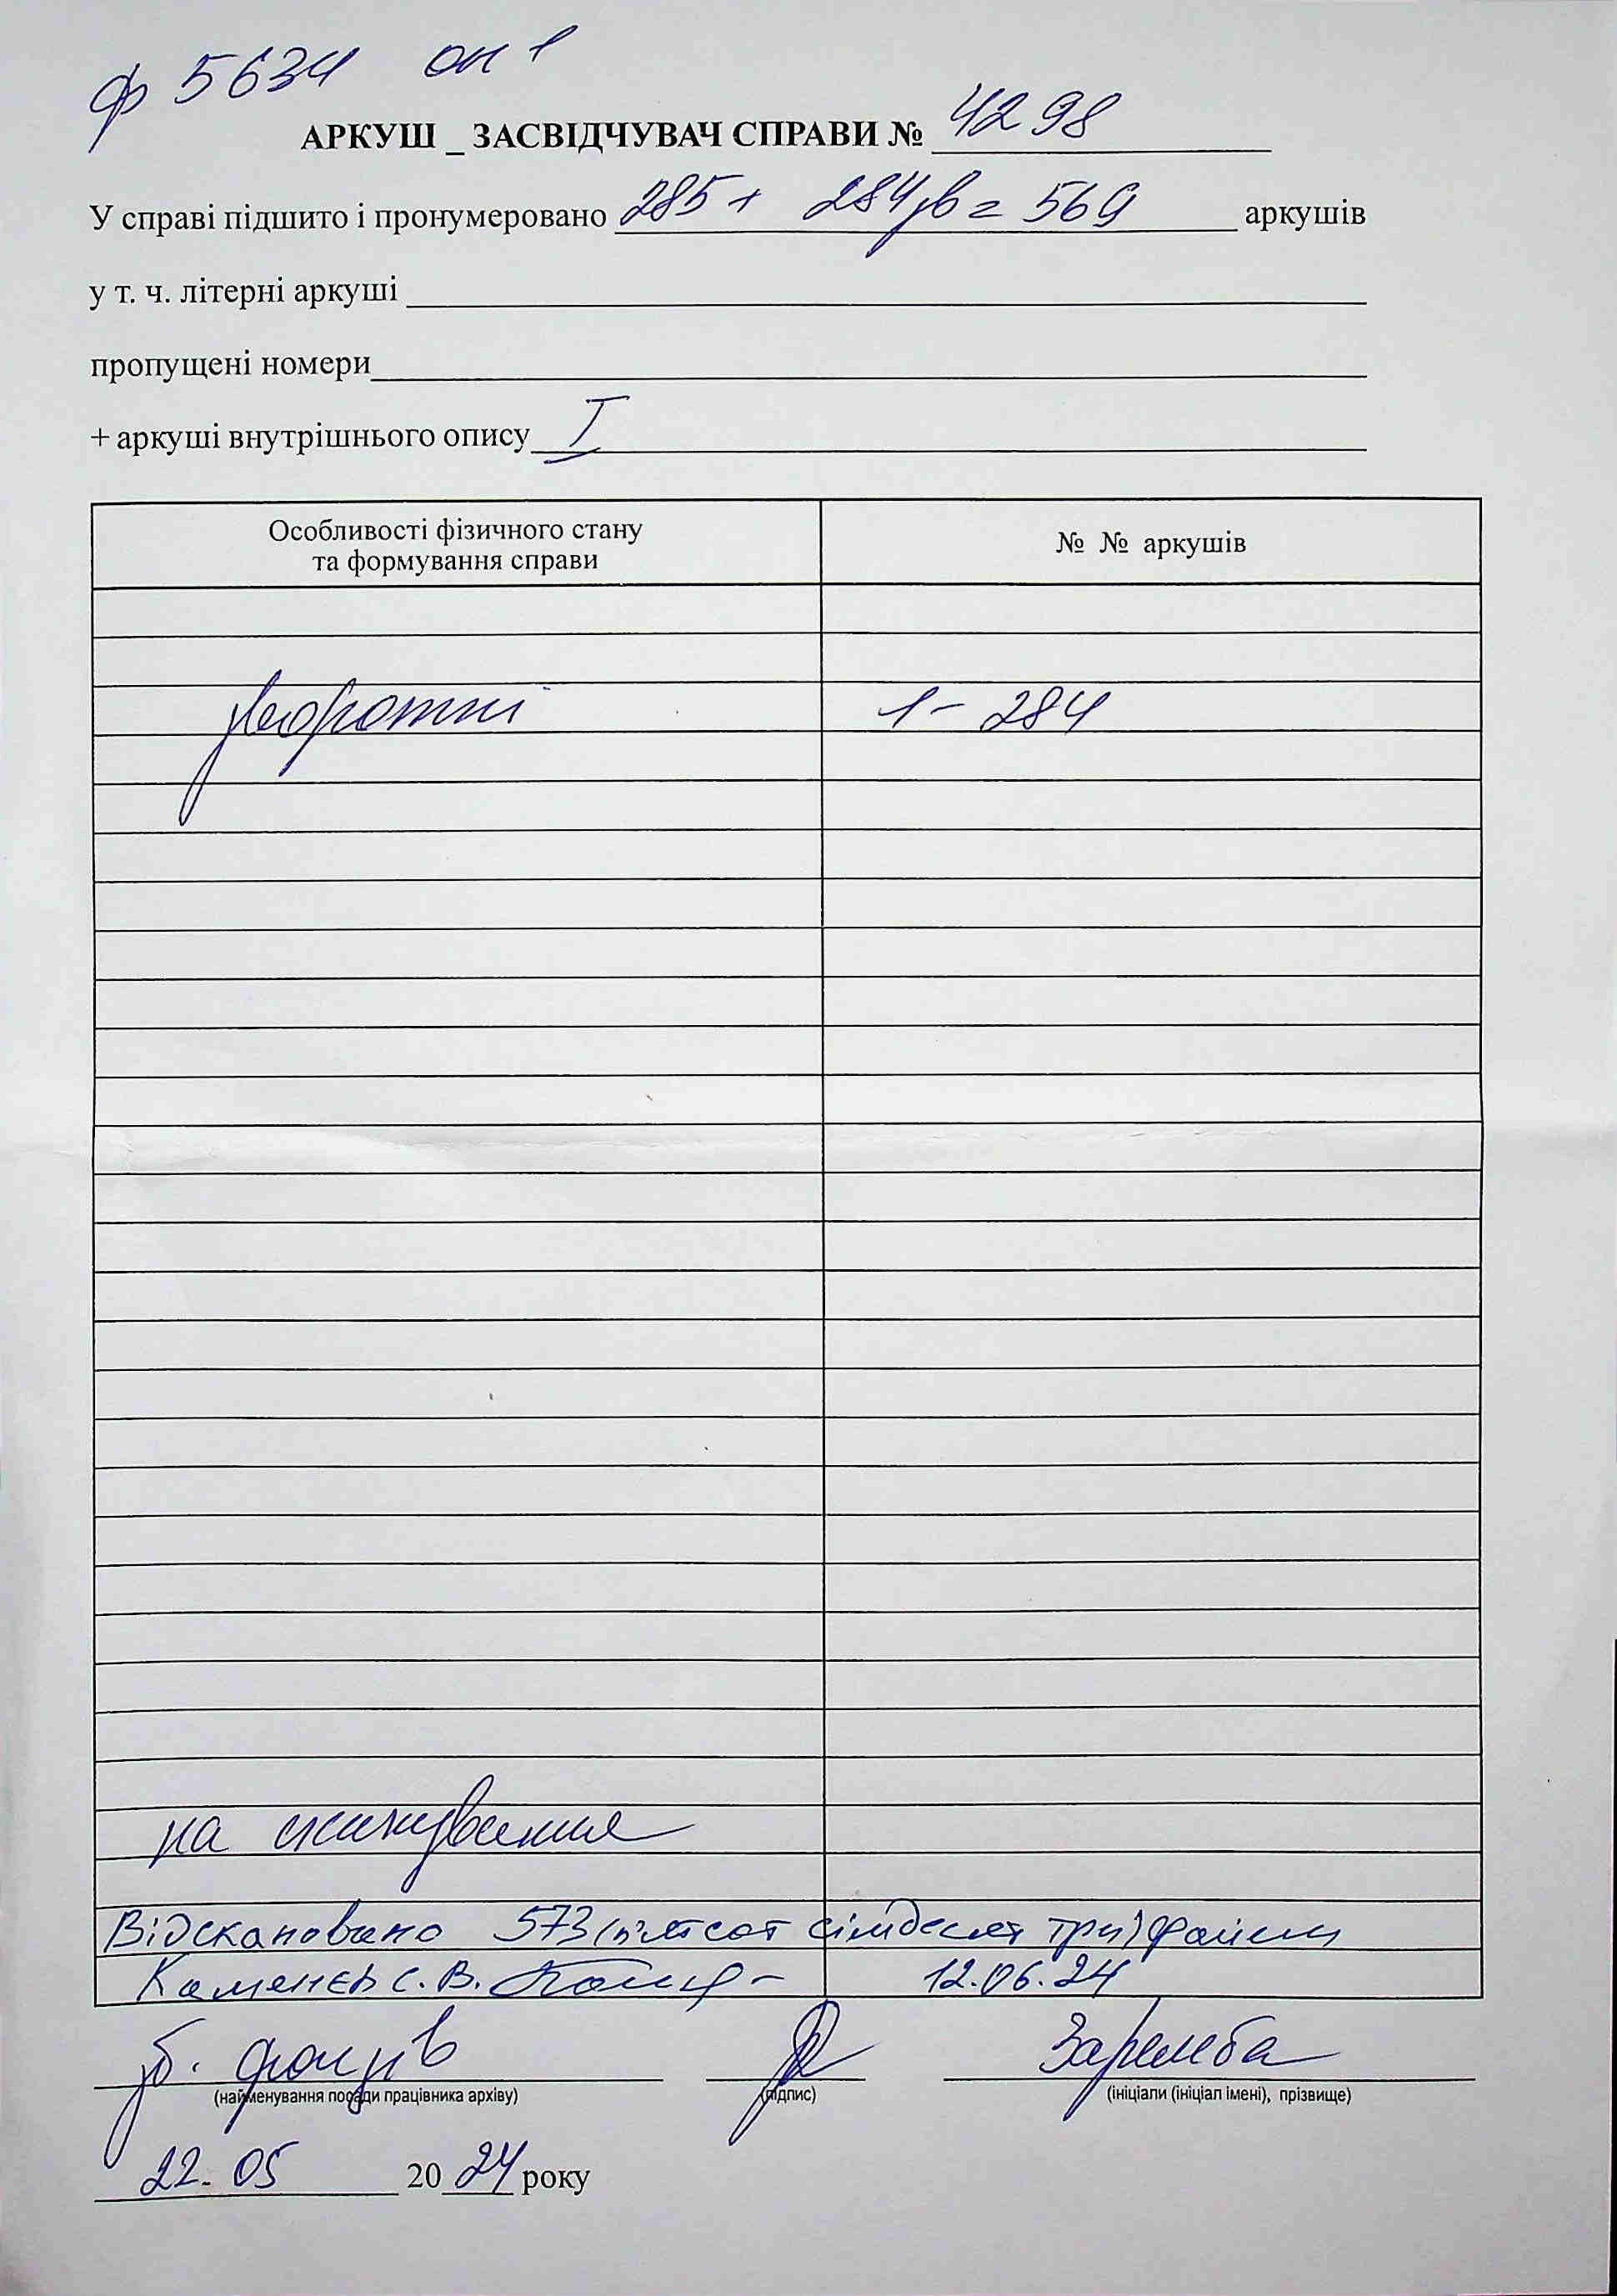 ф 5634 оп 1
АРКУШ _ ЗАСВІДЧУВАЧ СПРАВИ № 4298
У справі підшито і пронумеровано 285 + 284зв = 569 аркушів
у т. ч. літерні аркуші
пропущені номери
+ аркуші внутрішнього опису I
Особливості фізичного стану
та формування справи
№ № аркушів
зворотні 1 - 284
на сканування
Відскановано 573 (п'ятсот сімдесят три) файли
Каменєв С. В. 12.06.24
зб. фондів Заремба
(найменування посади працівника архіву) (підпис) (ініціали (ініціал імені), прізвище)
22. 05 20 24 року